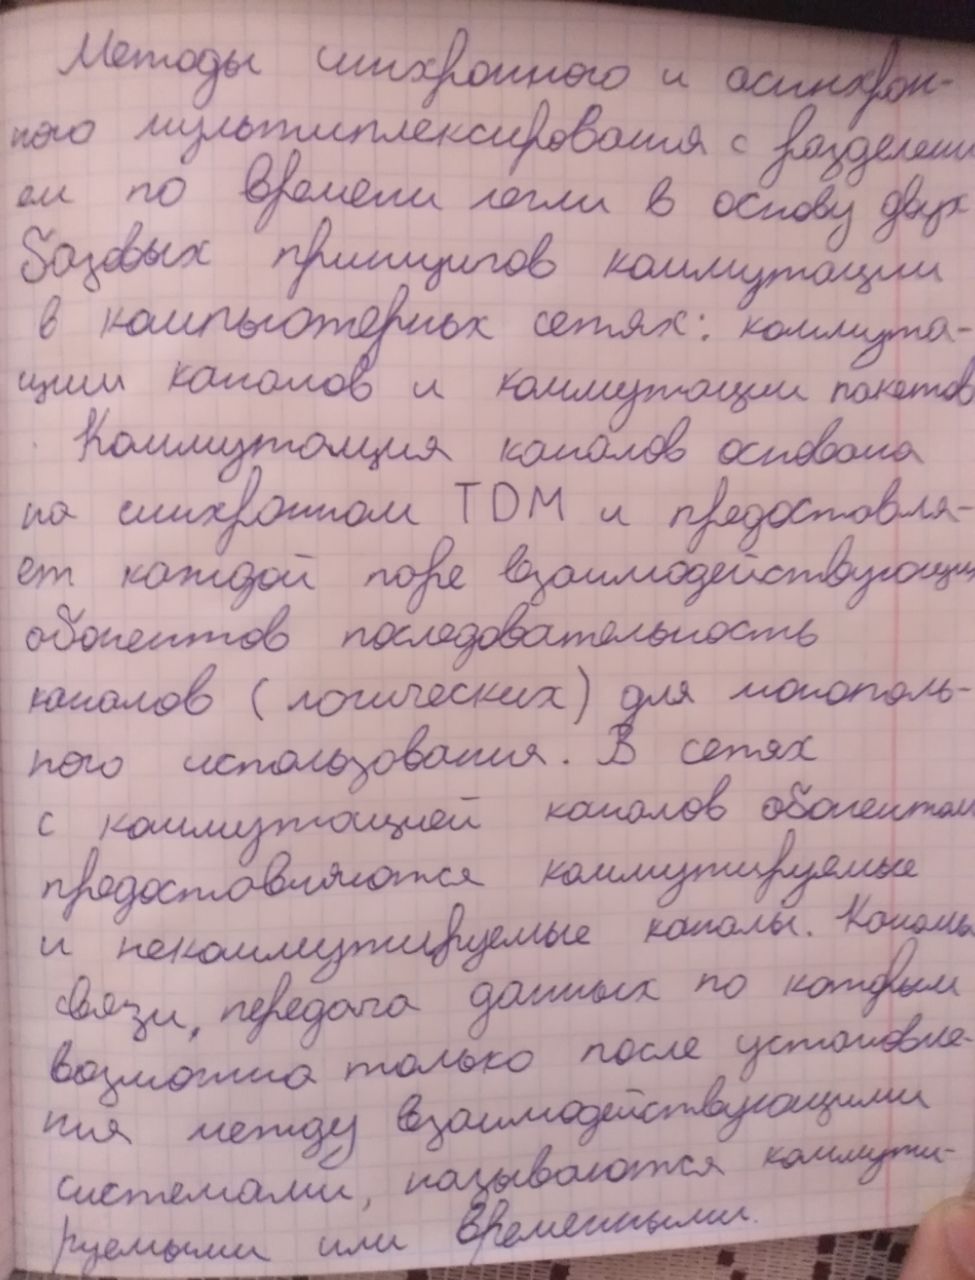 Методы синхронного и асинхрон-
ного мультиплексирования с разделени
ем по времени легли в основу двух
базовых принципов коммутации
в компьютерных сетях: коммута-
ции каналов и коммутации пакетов
Коммутация каналов основана
на синхронном TDM и предоставля-
ет каждой паре взаимодействующих
абонентов последовательность
каналов (логических) для монополь-
ного использования. В сетях
с коммутацией каналов абонентам
предоставляются коммутируемые
и некоммутируемые каналы. Каналы
связи, передача данных по которым
возможна только после установле-
ния между взаимодействующими
системами, называются коммути-
руемыми или временными.